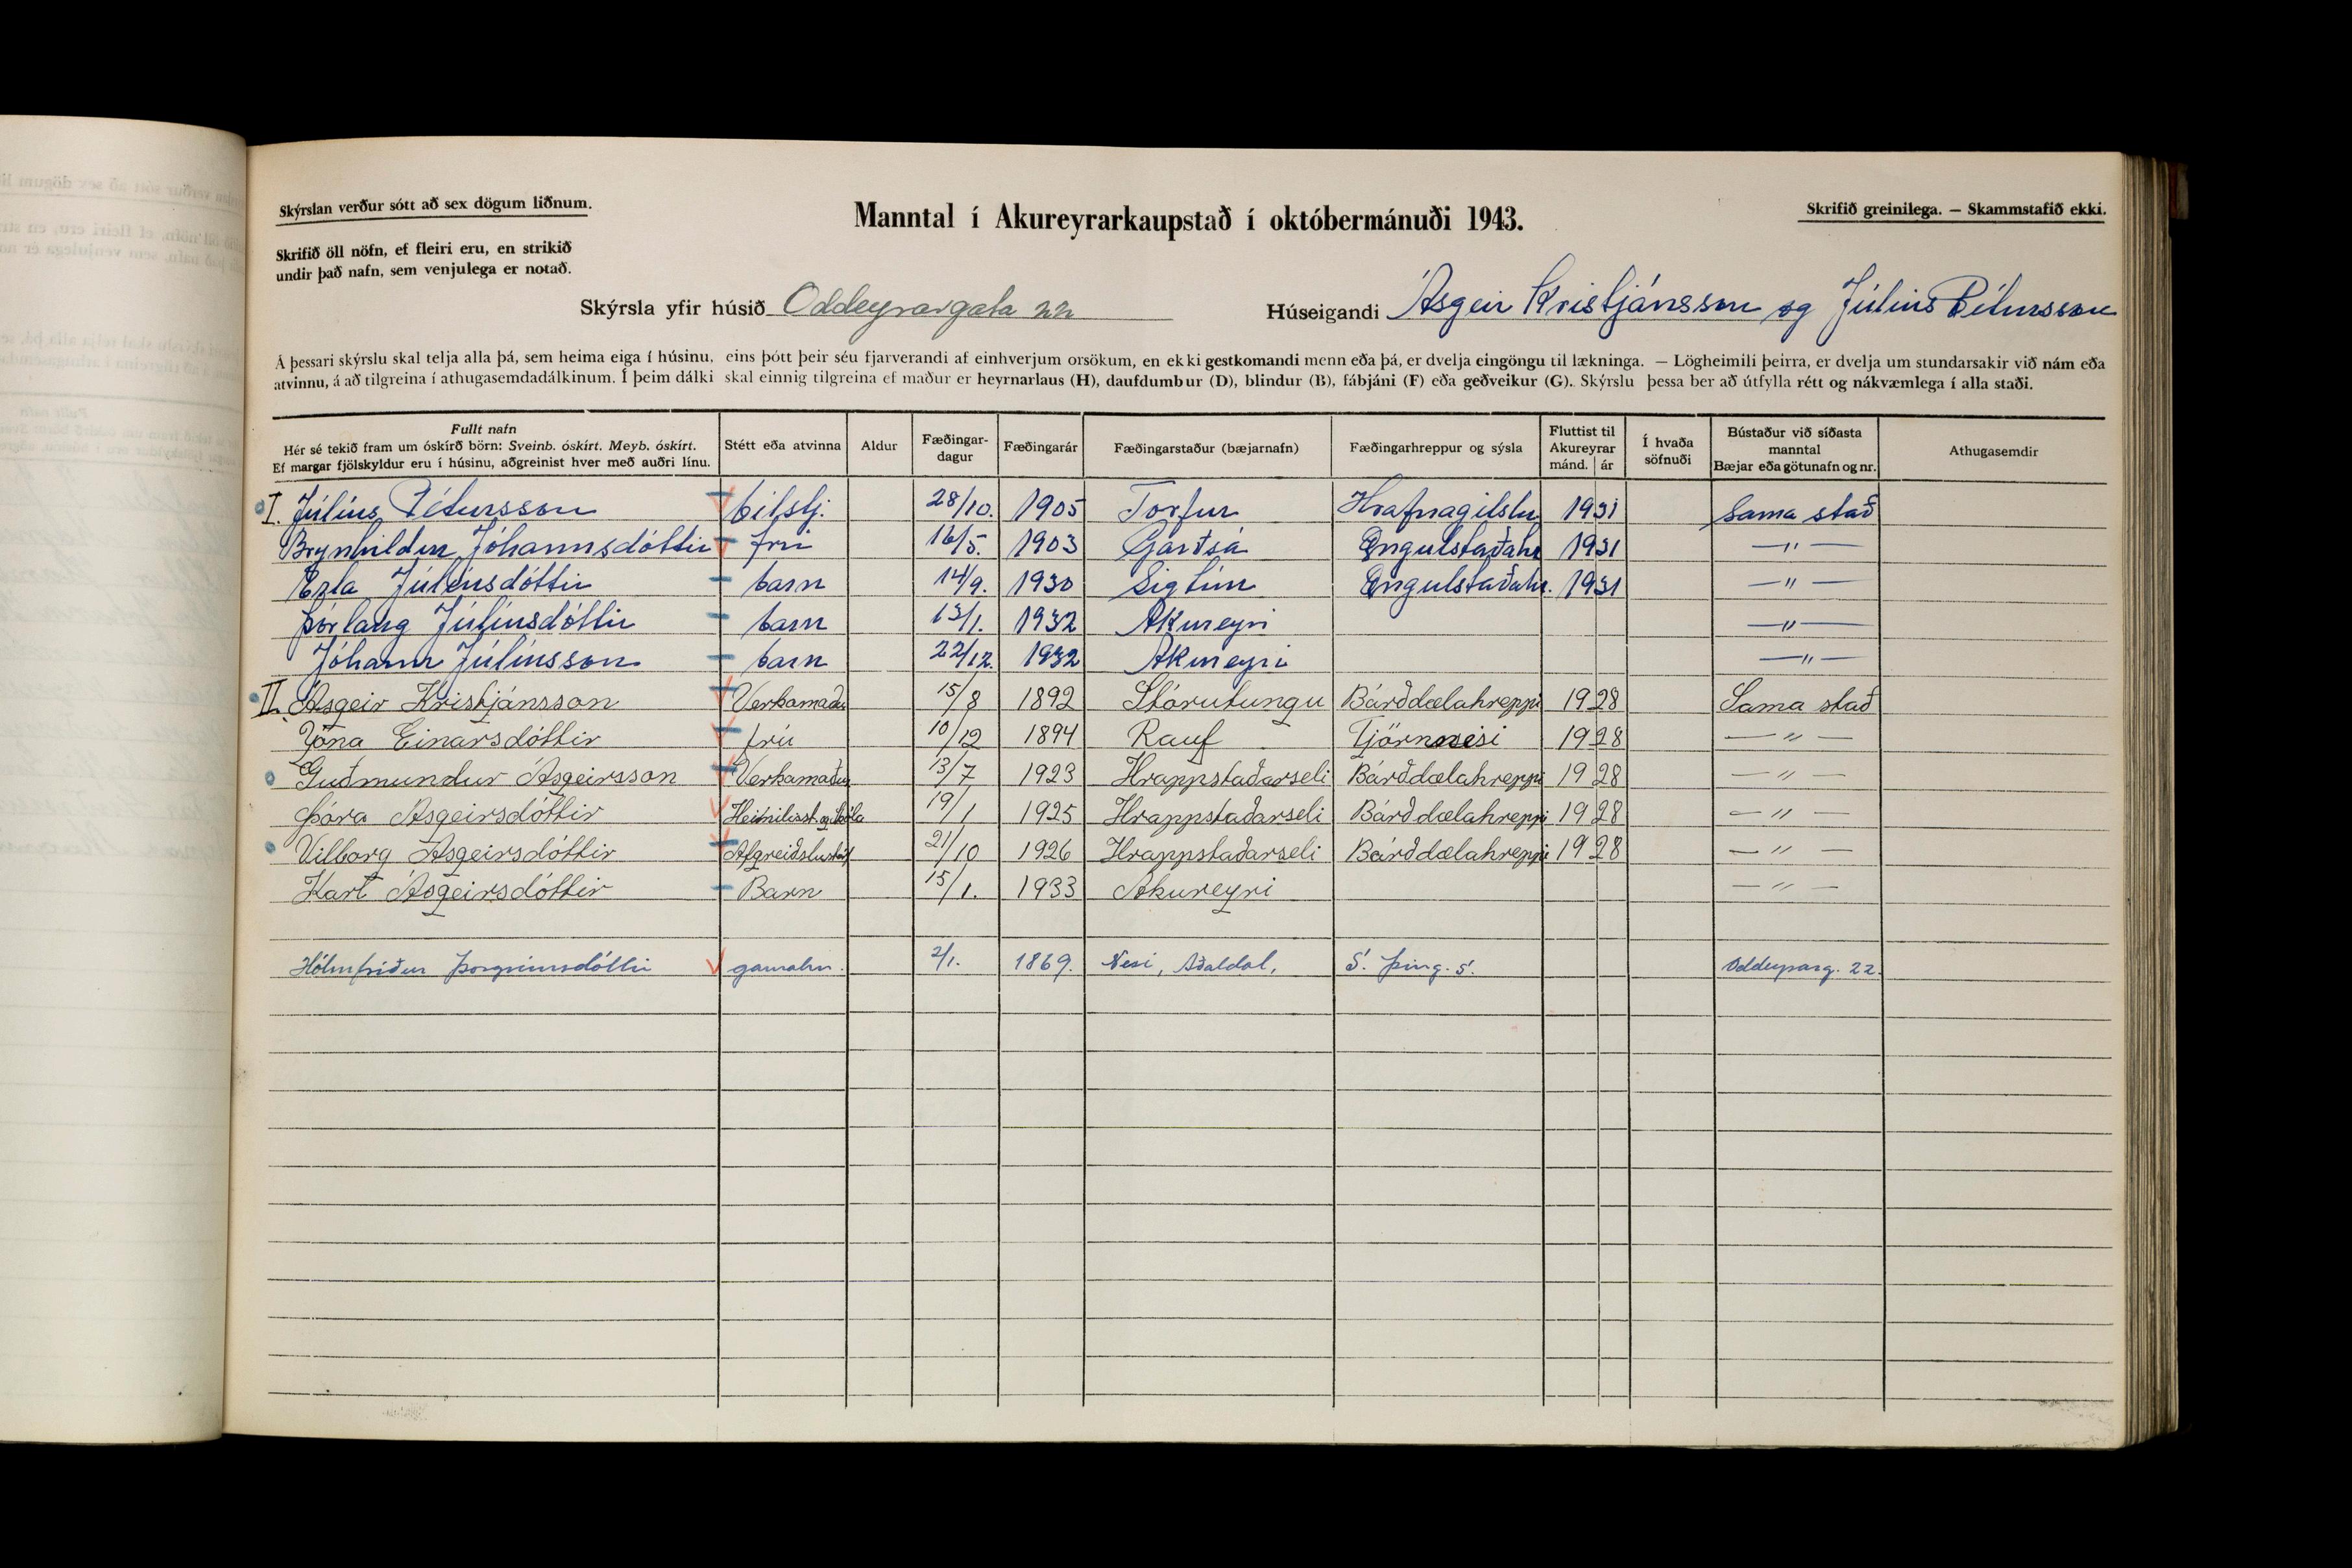 Skýrslan verður sótt að sex dögum liðnum.
Manntal í Akureyrarkaupstað í októbermánuði 1943.
Skrifið greinilega. — Skammstafið ekki.
Skrifið öll nöfn, ef fleiri eru, en strikið
undir það nafn, sem venjulega er notað.
Skýrsla yfir húsið Oddeyrargata 22 Húseigandi Ásgeir Kristjánsson og Júlíus Pétursson
Á þessari skýrslu skal telja alla þá, sem heima eiga í húsinu, eins þótt þeir séu fjarverandi af einhverjum orsökum, en ekki gestkomandi menn eða þá, er dvelja eingöngu til lækninga. — Lögheimili þeirra, er dvelja um stundarsakir við nám eða
atvinnu, á að tilgreina í athugasemdadálkinum. Í þeim dálki skal einnig tilgreina ef maður er heyrnarlaus (H), daufdumbur (D), blindur (B), fábjáni (F) eða geðveikur (G). Skýrslu þessa ber að útfylla rétt og nákvæmlega í alla staði.
Fullt nafn
Hér sé tekið fram um óskírð börn: Sveinb. óskírt. Meyb. óskírt.
Ef margar fjölskyldur eru í húsinu, aðgreinist hver með auðri línu.
Stétt eða atvinna
Aldur
Fæðingar-
dagur
Fæðingarár
Fæðingarstaður (bæjarnafn)
Fæðingarhreppur og sýsla
Fluttist til
Akureyrar
mánd. ár
Í hvaða
söfnuði
Bústaður við síðasta
manntal
Bæjar eða götunafn og nr.
Athugasemdir
I. Júlíus Pétursson bílstj. 28/10. 1905 Torfur Hrafnagilshr 1931 Sama stað
Brynhildur Jóhannsdóttir frú 16/5. 1903 Garðsá Öngulstaðahr 1931 — " —
Erla Júlíusdóttir barn 14/9. 1930 Sigtún Öngulstaðahr. 1931 — " —
Þórlaug Júlíusdóttir barn 13/1. 1932 Akureyri — " —
Jóhann Júlíusson barn 22/12. 1932 Akureyri — " —
II. Ásgeir Kristjánsson Verkamaður 15/8 1892 Stórutungu Bárðdælahreppi 1928 Sama stað
Jóna Einarsdóttir frú 10/12 1894 Rauf Tjörnnesi 1928 — " —
Guðmundur Ásgeirsson Verkamaður 13/7 1923 Hrappstaðarseli Bárðdælahreppi 1928 — " —
Þóra Ásgeirsdóttir Heimilisst. og skóla 19/1 1925 Hrappstaðarseli Bárðdælahreppi 1928 — " —
Vilborg Ásgeirsdóttir 21/10 1926 Hrappstaðarseli Bárðdælahreppi 1928 — " —
Karl Ásgeirsdóttir Barn 15/1. 1933 Akureyri — " —
Hólmfríður Þorgrímsdóttir gamalm. 2/1. 1869. Nesi, Aðaldal, S. Þing. s. Oddeyrarg. 22.